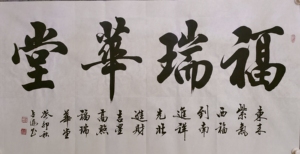 福瑞華堂
東來
紫氣
西福
到南
進祥
光北
進財
吉星
高照
福瑞
華堂
癸卯秋